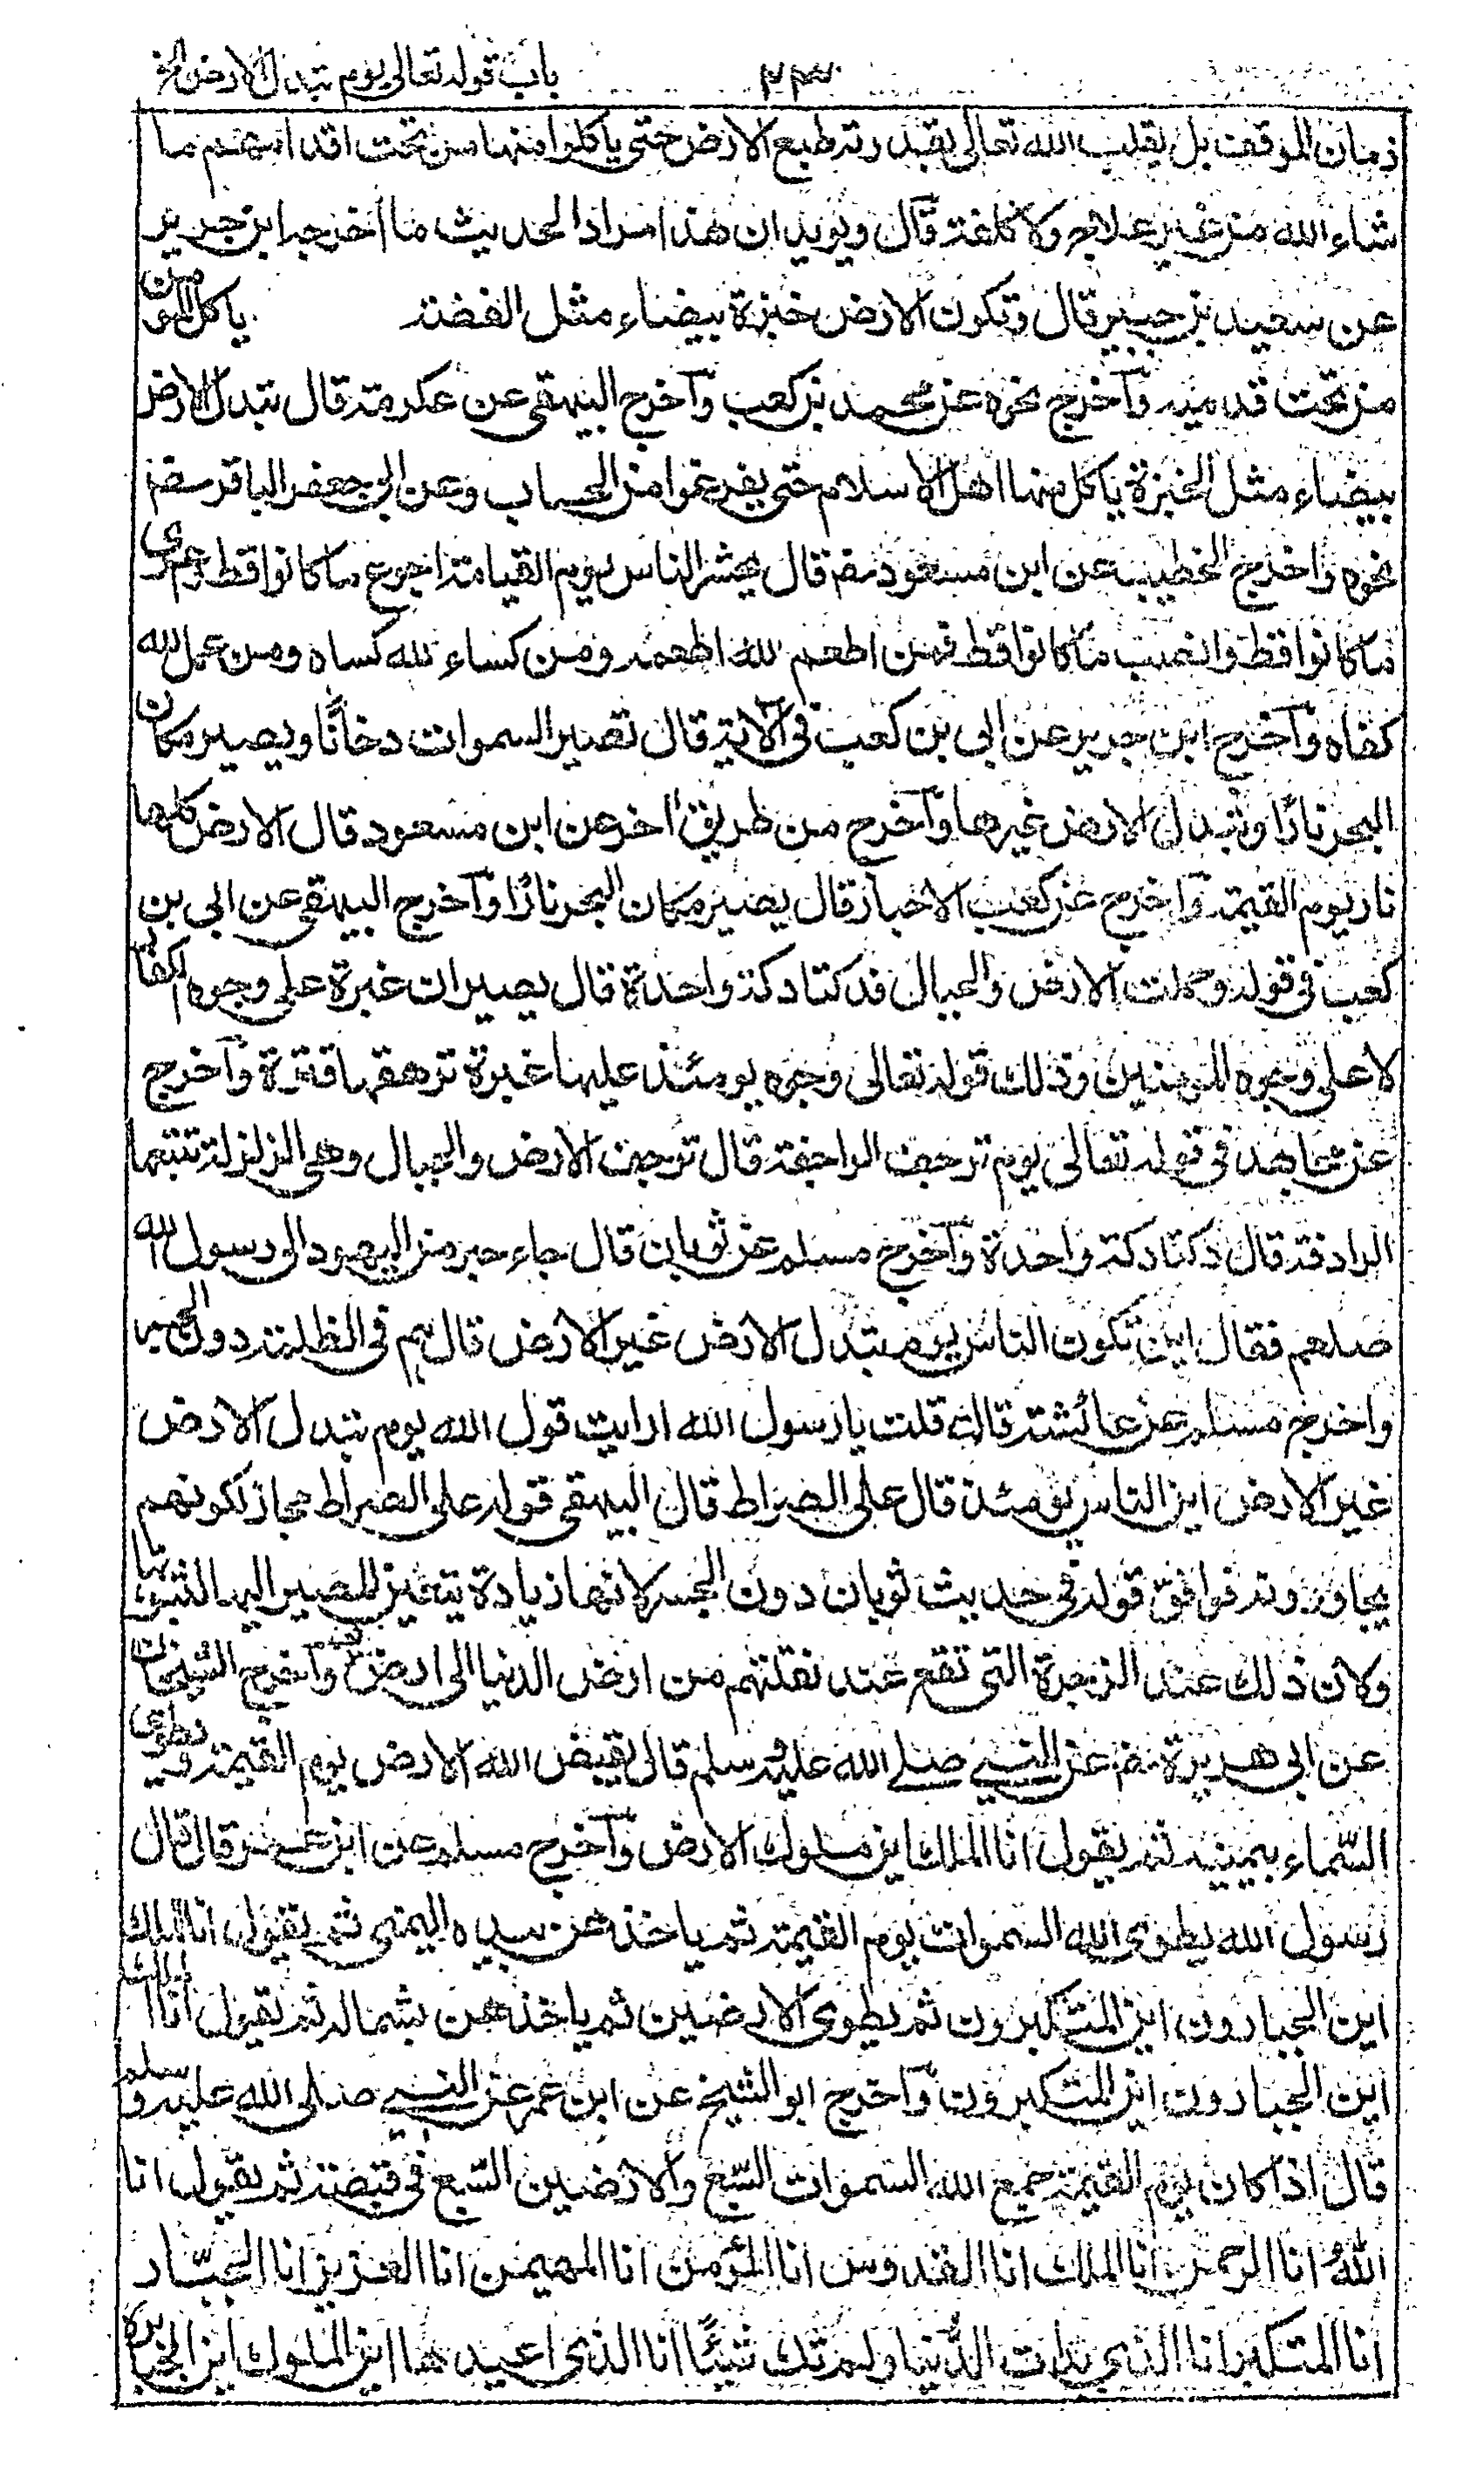 باب قوله تعالى يوم تبدل الارض الخ
٢٣٠
زمان الموقف بل يقلب الله تعالى بقدرته طبع الارض حتى ياكلوا منها من تحت اقدامهم ما
شاء الله من غير علاج ولا كلفة قال ويويد ان هذا مراد الحديث ما اخرجه ابن جرير
عن سعيد بن جبير قال وتكون الارض خبزة بيضاء مثل الفضة ياكل المومن
من تحت قدميه وآخرج نحوه عن محمد بن كعب وآخرج البيهقى عن عكرمة قال تبدل الارض
بيضاء مثل الخبزة ياكل منها اهل الاسلام حتى يفرغوا من الحساب وعن ابى جعفر الباقر رضه
نحوه واخرج الخطيب عن ابن مسعود رضه قال يحشر الناس يوم القيامة اجوع ما كانوا قط واعرى
ما كانوا قط وانصب ما كانوا قط فمن اطعم لله اطعمه ومن كساء لله كساه ومن عمل لله
كفاه وآخرج ابن جرير عن ابى بن كعب فى الآية قال تصير السموات دخانًا ويصير مكان
البحر نارًا وتبدل الارض غيرها وآخرج من طريق اخر عن ابن مسعود قال الارض كلها
نار يوم القيمة وآخرج عن كعب الاحبار قال يصير مكان البحر نارًا وآخرج البيهقى عن ابى بن
كعب فى قوله وحملت الارض والجبال فدكتا دكة واحدة قال يصيران غبرة على وجوه الكفار
لا على وجوه المومنين وذلك قوله تعالى وجوه يومئذ عليها غبرة ترهقها قترة وآخرج
عن مجاهد فى قوله تعالى يوم ترجف الراجفة قال ترجف الارض والجبال وهى الزلزلة تتبعها
الرادفة قال دكتا دكة واحدة وآخرج مسلم عن ثوبان قال جاء حبر من اليهود الى رسول الله
صلعم فقال اين تكون الناس يوم تبدل الارض غير الارض قال هم فى الظلمة دون الجسر
واخرج مسلم عن عائشة قالت قلت يا رسول الله ارايت قول الله يوم تبدل الارض
غير الارض اين الناس يومئذ قال على الصراط قال البيهقى قوله على الصراط مجاز لكونهم
يجاوزونه فوافق قوله فى حديث ثوبان دون الجسر لانها زيادة يتعين المصير اليها لثبوتها
ولان ذلك عند الزجرة التى تقع عند نقلتهم من ارض الدنيا الى ارض وآخرج الشيخان
عن ابى هريرة رضه عن النبى صلى الله عليه وسلم قال يقبض الله الارض يوم القيمة ويطوى
السّماء بيمينه ثم يقول انا الملك اين ملوك الارض وآخرج مسلم عن ابن عمر قال قال
رسول الله يطوى الله السموات يوم القيمة ثم ياخذهن بيده اليمنى ثم يقول انا الملك
اين الجبارون اين المتكبرون ثم يطوى الارضين ثم ياخذهن بشماله ثم يقول انا الملك
اين الجبارون اين المتكبرون وآخرج ابو الشيخ عن ابن عمر عن النبى صلى الله عليه وسلم
قال اذا كان يوم القيمة جمع الله السموات السّبع والارضين السّبع فى قبضته ثم يقول انا
اللهُ انا الرحمن انا الملك انا القدوس انا المؤمن انا المهيمن انا العزيز انا الجبّار
انا المتكبر انا الذى بدات الدُّنيا ولم تك شيئًا انا الذى اعيدها اين الملوك اين الجبابرة